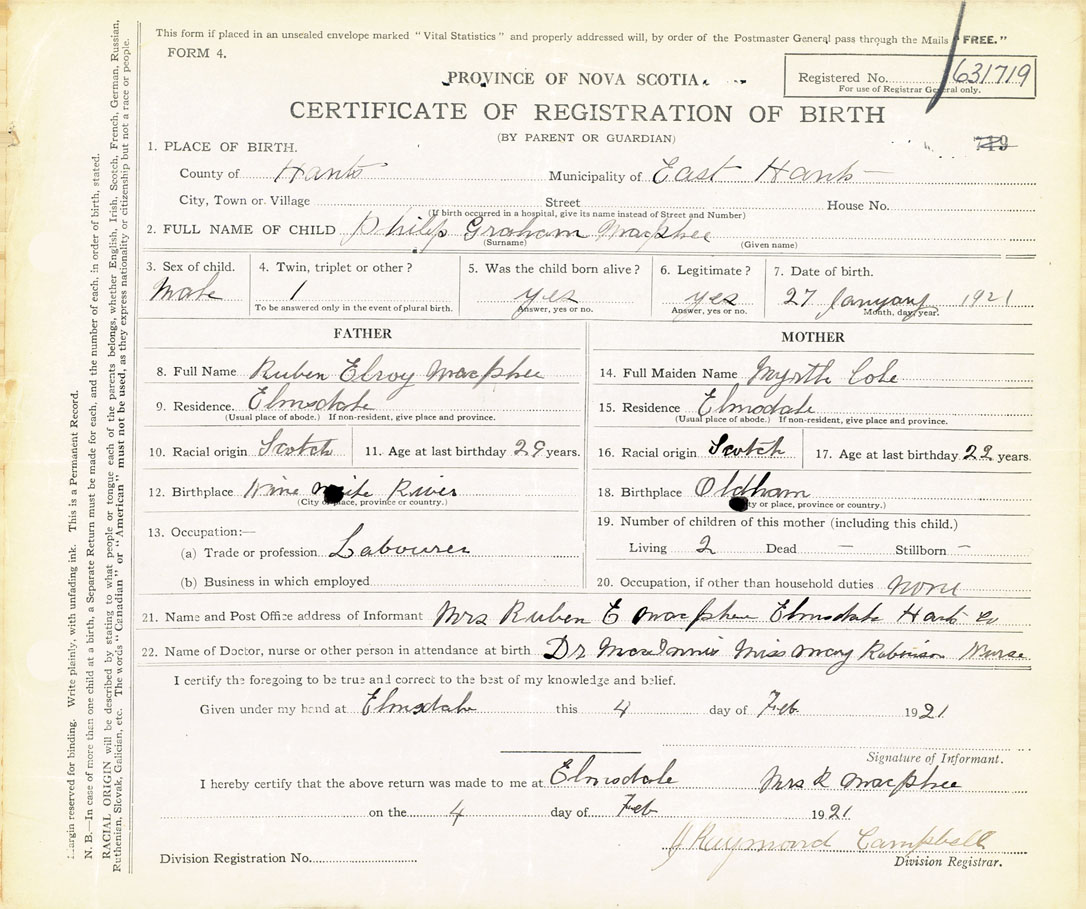 This form if placed in an unsealed envelope marked "Vital Statistics" and properly addressed will, by order of the Postmaster General pass through the Mails "FREE."
FORM 4.
PROVINCE OF NOVA SCOTIA.
Registered No. 631719
For use of Registrar General only.
CERTIFICATE OF REGISTRATION OF BIRTH
(BY PARENT OR GUARDIAN)
719
1. PLACE OF BIRTH.
County of Hants Municipality of East Hants
City, Town or Village Street House No.
(If birth occurred in a hospital, give its name instead of Street and Number)
2. FULL NAME OF CHILD Philip Graham Macphee
(Surname) (Given name)
3. Sex of child. 4. Twin, triplet or other? 5. Was the child born alive? 6. Legitimate? 7. Date of birth.
Male 1 yes yes 27 January 1921
To be answered only in the event of plural birth. Answer, yes or no. Answer, yes or no. Month, day, year.
FATHER
8. Full Name Ruben Elroy Macphee
9. Residence. Elmsdale
(Usual place of abode.) If non-resident, give place and province.
10. Racial origin Scotch 11. Age at last birthday 29 years.
12. Birthplace Nine Mile River
(City or place, province or country.)
13. Occupation:—
(a) Trade or profession Labourer
(b) Business in which employed
MOTHER
14. Full Maiden Name Myrtle Cole
15. Residence Elmsdale
(Usual place of abode.) If non-resident, give place and province.
16. Racial origin Scotch 17. Age at last birthday 22 years.
18. Birthplace Oldham
(City or place, province or country.)
19. Number of children of this mother (including this child.)
Living 2 Dead — Stillborn —
20. Occupation, if other than household duties none
21. Name and Post Office address of Informant Mrs Ruben E Macphee Elmsdale Hants Co
22. Name of Doctor, nurse or other person in attendance at birth Dr MacInnis Miss Mary Robinson Nurse
I certify the foregoing to be true and correct to the best of my knowledge and belief.
Given under my hand at Elmsdale this 4 day of Feb 1921
Signature of Informant.
I hereby certify that the above return was made to me at Elmsdale Mrs R Macphee
on the 4 day of Feb 1921
J Raymond Campbell
Division Registration No. Division Registrar.
Margin reserved for binding. Write plainly, with unfading ink. This is a Permanent Record.
N. B.—In case of more than one child at a birth, a Separate Return must be made for each, and the number of each, in order of birth, stated.
RACIAL ORIGIN will be described by stating to what people or tongue each of the parents belongs, whether English, Irish, Scotch, French, German, Russian,
Ruthenian, Slovak, Galician, etc. The words "Canadian" or "American" must not be used, as they express nationality or citizenship but not a race or people.